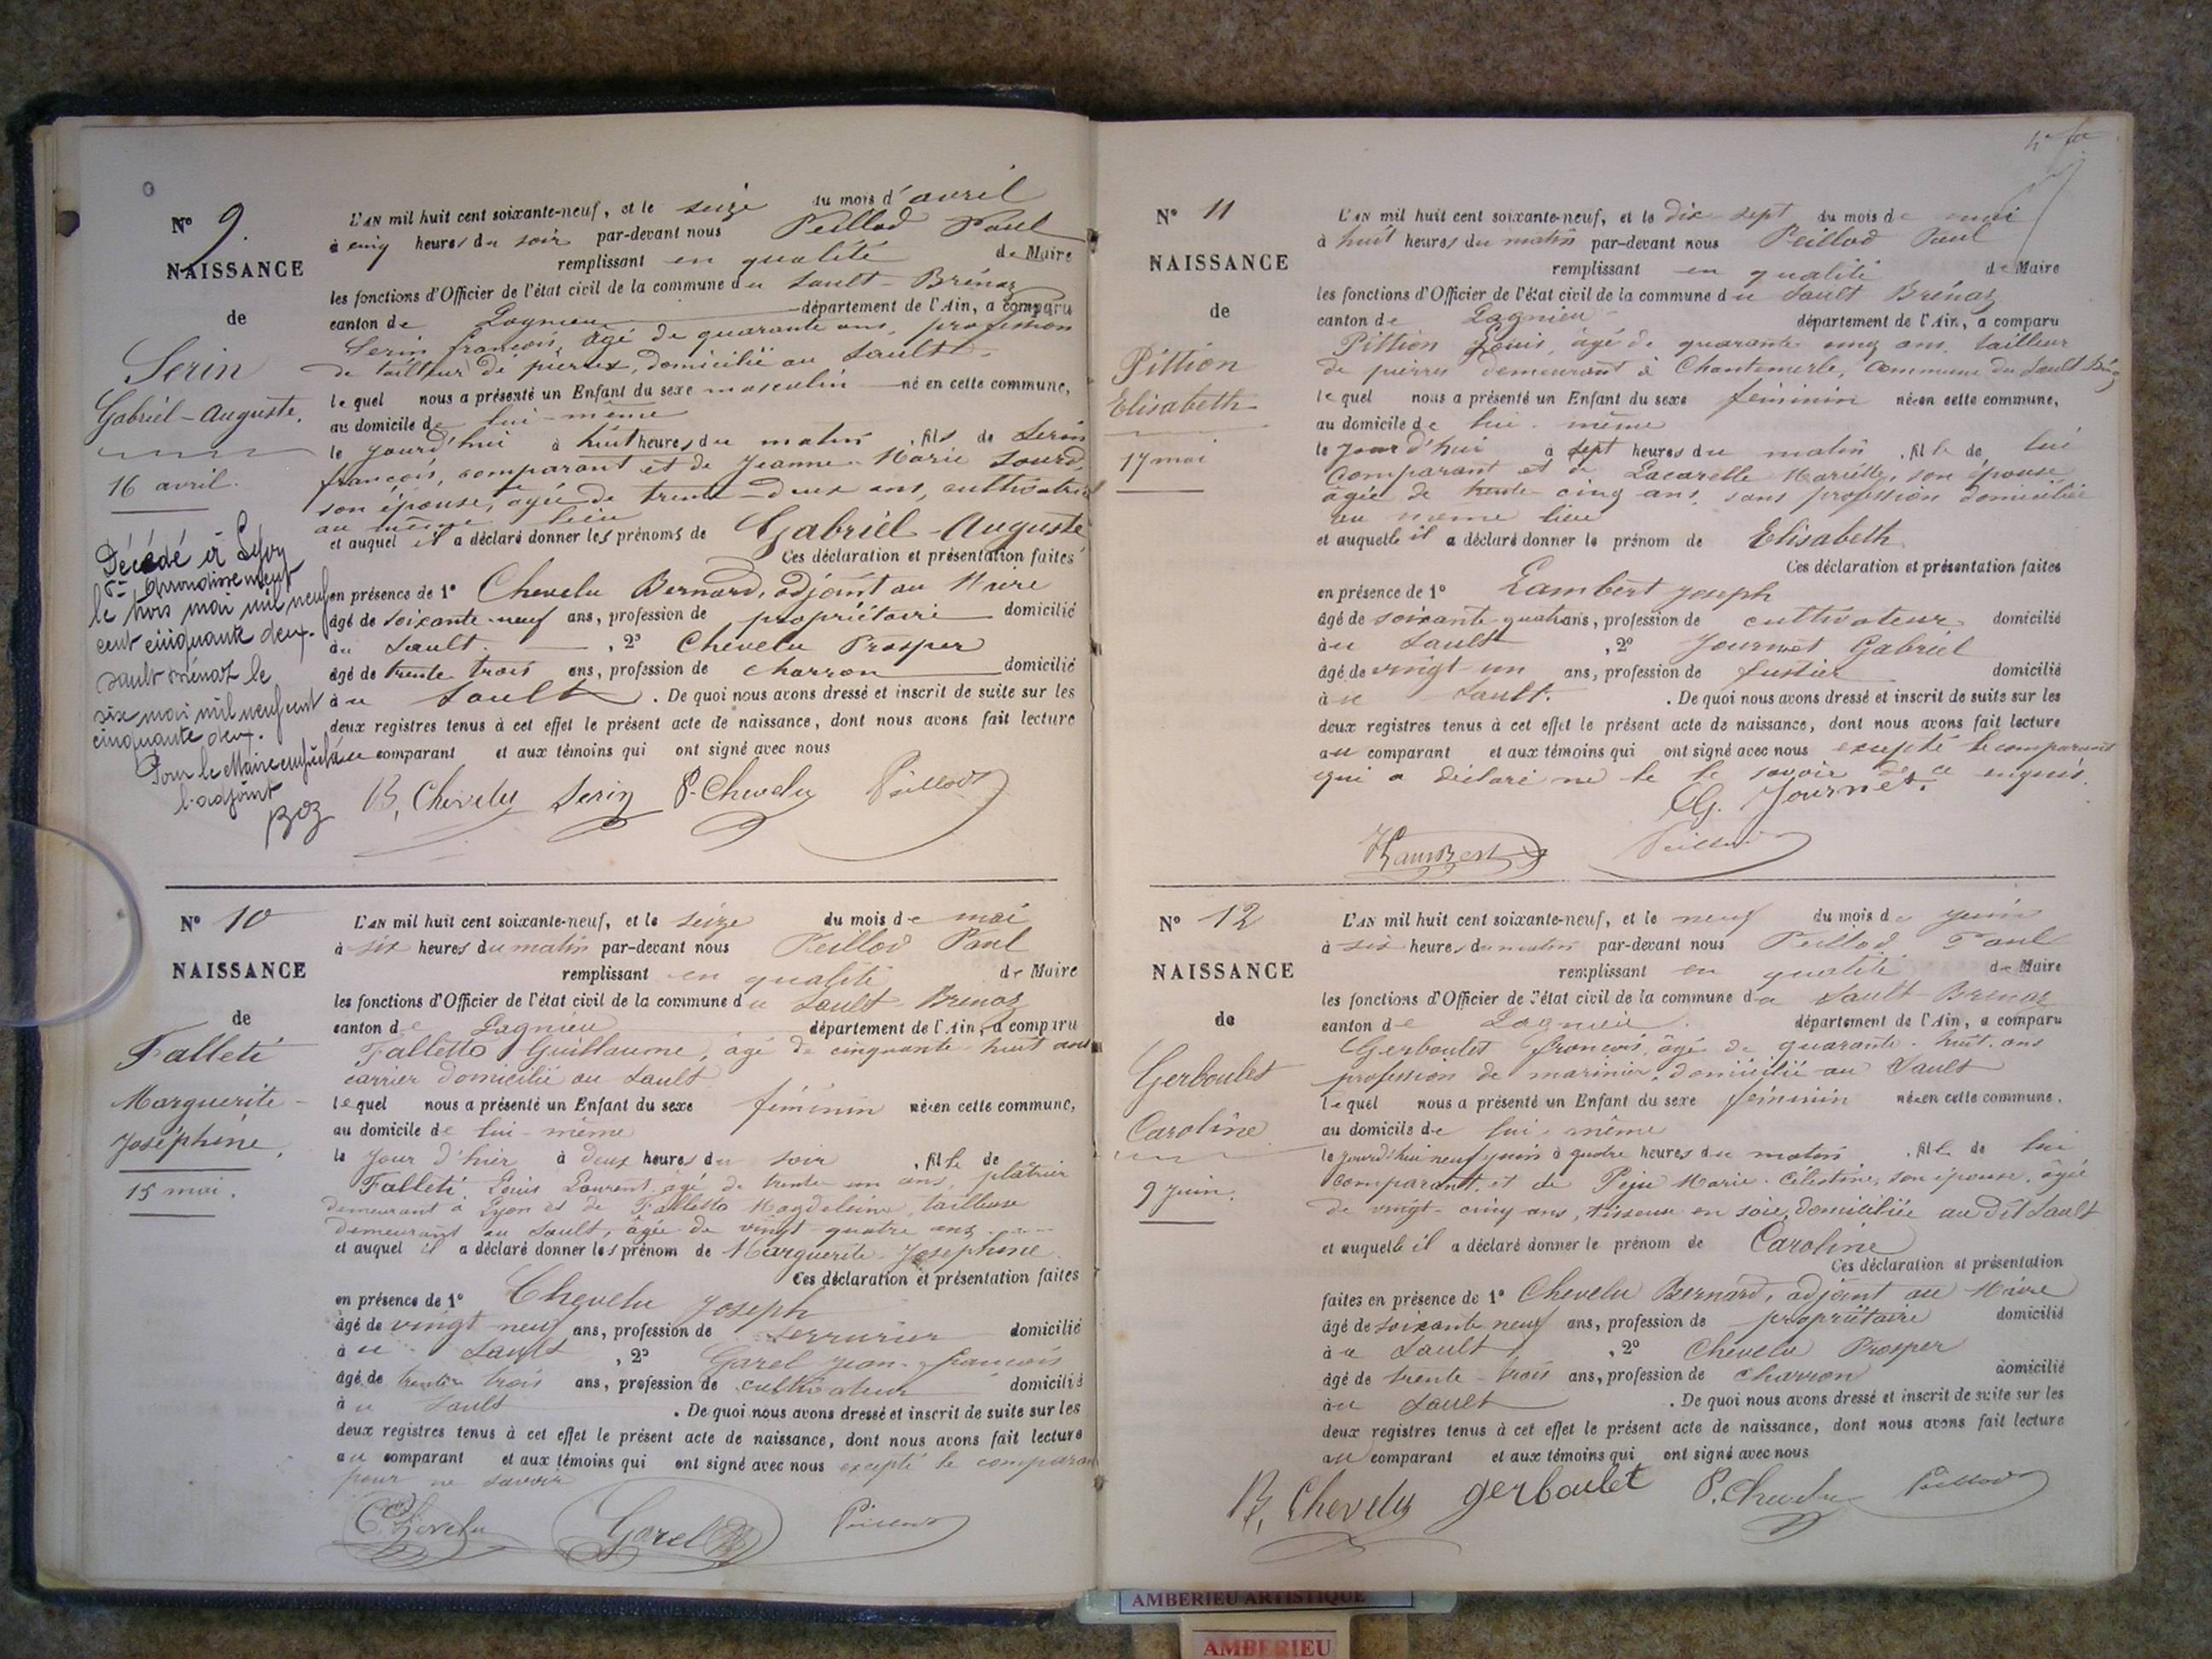 N° 9.
NAISSANCE
de
Serin
Gabriel-Auguste.
16 avril.
Décédé à Lyon
arrondissement
le trois mai mil neuf
cent cinquante deux.
Sault Brénaz le
six mai mil neuf cent
cinquante deux.
Pour le Maire empêché
l'adjoint
Boz
L'AN mil huit cent soixante-neuf, et le seize du mois d'avril
à cinq heures du soir par-devant nous Peillod Paul
remplissant en qualité de Maire
les fonctions d'Officier de l'état civil de la commune du Sault-Brénaz
canton de Lagnieu département de l'Ain, a comparu
Serin françois, âgé de quarante ans, profession
de tailleur de pierres, domicilié au Sault
lequel nous a présenté un Enfant du sexe masculin né en cette commune,
au domicile de lui-même
le jourd'hui à huit heures du matin, fils de Serin
françois, comparant et de Jeanne-Marie Sourd,
son épouse, agée de trente-deux ans, cultivatrice
au même lieu
et auquel il a déclaré donner les prénoms de Gabriel-Auguste
Ces déclaration et présentation faites
en présence de 1° Chevelu Bernard, adjoint au Maire
âgé de soixante-neuf ans, profession de propriétaire domicilié
au Sault. , 2° Chevelu Prosper
âgé de trente trois ans, profession de charron domicilié
au Sault . De quoi nous avons dressé et inscrit de suite sur les
deux registres tenus à cet effet le présent acte de naissance, dont nous avons fait lecture
au comparant et aux témoins qui ont signé avec nous
B, Chevelu Serin P. Chevelu Peillod
N° 10
NAISSANCE
de
Falleti
Marguerite-
Joséphine,
15 mai.
L'AN mil huit cent soixante-neuf, et le seize du mois de mai
à six heures du matin par-devant nous Peillod Paul
remplissant en qualité de Maire
les fonctions d'Officier de l'état civil de la commune du Sault-Brenaz
canton de Lagnieu département de l'Ain, a comparu
Falletto Guillaume, âgé de cinquante-huit ans
carrier domicilié au Sault
lequel nous a présenté un Enfant du sexe féminin née en cette commune,
au domicile de lui-même
le jour d'hier à deux heures du soir , fille de
Falleti Louis Laurent, âgé de trente un ans, plâtrier
demeurant à Lyon et de Falletto Magdeleine, tailleuse
demeurant au Sault, âgée de vingt-quatre ans
et auquel il a déclaré donner les prénom de Marguerite-Josephine
Ces déclaration et présentation faites
en présence de 1° Chevelu Joseph
âgé de vingt neuf ans, profession de serrurier domicilié
au Sault , 2° Garel Jean-françois
âgé de trente trois ans, profession de cultivateur domicilié
au Sault . De quoi nous avons dressé et inscrit de suite sur les
deux registres tenus à cet effet le présent acte de naissance, dont nous avons fait lecture
au comparant et aux témoins qui ont signé avec nous excepté le comparant
pour ne savoir
Chevelu Garel Peillod
N° 11
NAISSANCE
de
Pittion
Elisabeth
17 mai
L'AN mil huit cent soixante-neuf, et le dix-sept du mois de mai
à huit heures du matin par-devant nous Peillod Paul
remplissant en qualité de Maire
les fonctions d'Officier de l'état civil de la commune du Sault Brénaz
canton de Lagnieu département de l'Ain, a comparu
Pittion Louis, âgé de quarante cinq ans, tailleur
de pierres demeurant à Chantemerle, commune du Sault Brénaz
lequel nous a présenté un Enfant du sexe féminin née en cette commune,
au domicile de lui-même
le jourd'hui à sept heures du matin , fille de lui
comparant et de Lacarelle Mariette, son épouse
âgée de trente-cinq ans, sans profession domiciliée
au même lieu
et auquelle il a déclaré donner le prénom de Elisabeth
Ces déclaration et présentation faites
en présence de 1° Lambert Joseph
âgé de soixante-quatre ans, profession de cultivateur domicilié
au Sault , 2° Journet Gabriel
âgé de vingt-un ans, profession de fustier domicilié
au Sault. . De quoi nous avons dressé et inscrit de suite sur les
deux registres tenus à cet effet le présent acte de naissance, dont nous avons fait lecture
au comparant et aux témoins qui ont signé avec nous excepté le comparant
qui a déclaré ne le savoir de ce enquis.
G. Journet.
Lambert Peillod
N° 12
NAISSANCE
de
Gerboulet
Caroline
9 juin.
L'AN mil huit cent soixante-neuf, et le neuf du mois de juin
à six heures du matin par-devant nous Peillod Paul
remplissant en qualité de Maire
les fonctions d'Officier de l'état civil de la commune du Sault-Brenaz
canton de Lagnieu. département de l'Ain, a comparu
Gerboulet françois, âgé de quarante-huit ans
profession de marinier, domicilié au Sault
lequel nous a présenté un Enfant du sexe féminin née en cette commune.
au domicile de lui-même
le jourd'hui neuf juin à quatre heures du matin , fille de lui
comparant, et de Peju Marie-Célestine, son épouse, agée
de vingt-cinq ans, tisseuse en soie, domiciliée au dit Sault
et auquelle il a déclaré donner le prénom de Caroline
Ces déclaration et présentation
faites en présence de 1° Chevelu Bernard, adjoint au Maire
âgé de soixante neuf ans, profession de propriétaire domicilié
au Sault , 2° Chevelu Prosper
âgé de trente-trois ans, profession de charron domicilié
au Sault . De quoi nous avons dressé et inscrit de suite sur les
deux registres tenus à cet effet le présent acte de naissance, dont nous avons fait lecture
au comparant et aux témoins qui ont signé avec nous
B, Chevelu gerboulet P. Chevelu Peillod
AMBERIEU ARTISTIQUE
AMBERIEU